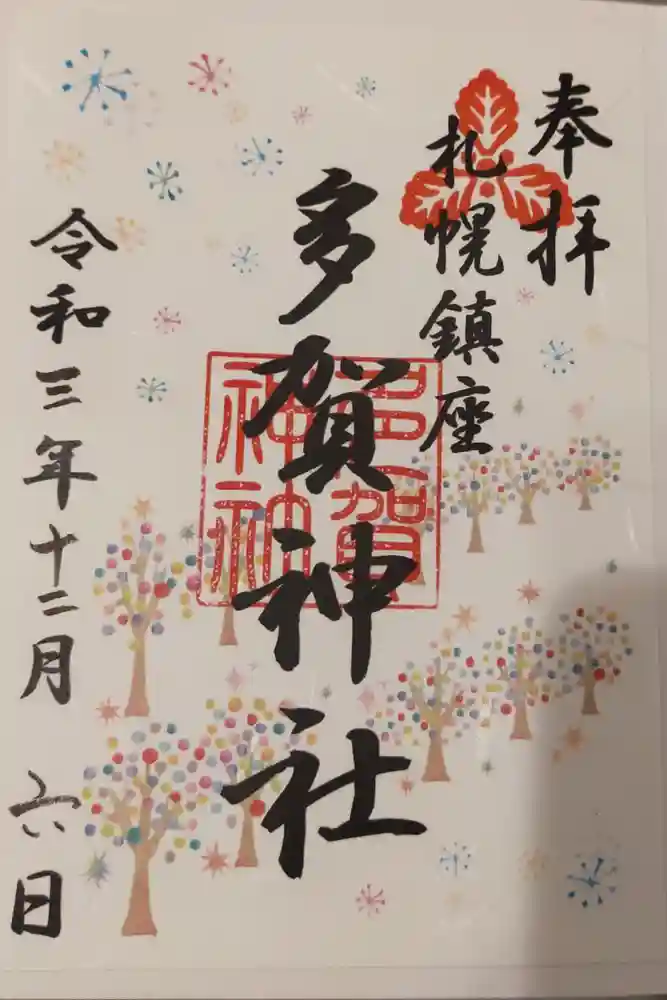 奉拝
札幌鎮座
多賀神社
多賀
神社
令和三年十二月六日